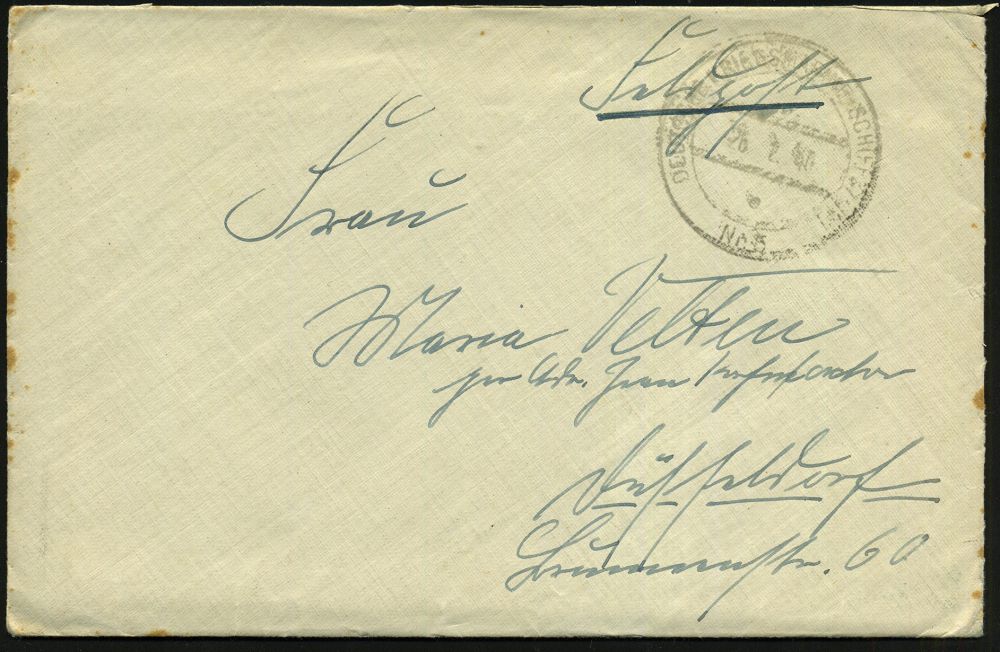 Feldpost
DEUTSCHE KRIEGSMARINE SCHIFFSPOST
26. 2. 40
No 5
Frau
Maria Velten
per Adr. Frau
Düsseldorf
Brunnenstr. 60